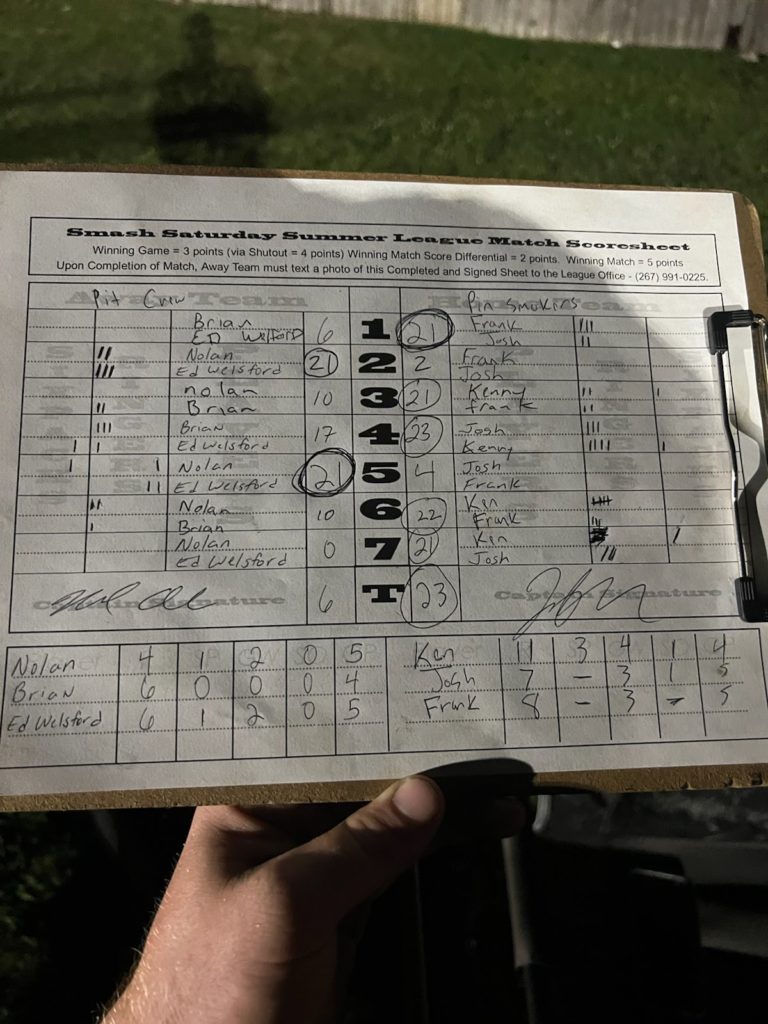 Smash Saturday Summer League Match Scoresheet
Winning Game = 3 points (via Shutout = 4 points) Winning Match Score Differential = 2 points. Winning Match = 5 points
Upon Completion of Match, Away Team must text a photo of this Completed and Signed Sheet to the League Office - (267) 991-0225.
Pit Crew Pin Smokers
Brian 6 1 21 Frank
ED Welsford Josh
Nolan 21 2 2 Frank
Ed Welsford Josh
nolan 10 3 21 Kenny
Brian frank
Brian 17 4 23 Josh
Ed Welsford Kenny
Nolan 21 5 4 Josh
Ed Welsford Frank
Nolan 10 6 22 Ken
Brian Frank
Nolan 0 7 21 Ken
Ed Welsford Josh
Captain Signature 6 T 23 Captain Signature
Nolan 4 1 2 0 5 Ken 11 3 4 1 4
Brian 6 0 0 0 4 Josh 7 - 3 1 5
Ed Welsford 6 1 2 0 5 Frank 8 - 3 - 5